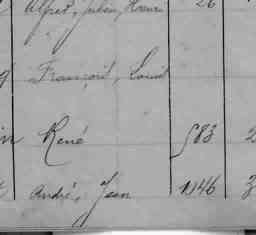 Alfred, Julien, Henri 26
François, Louis
René 583 2
André, Jean 1046 3